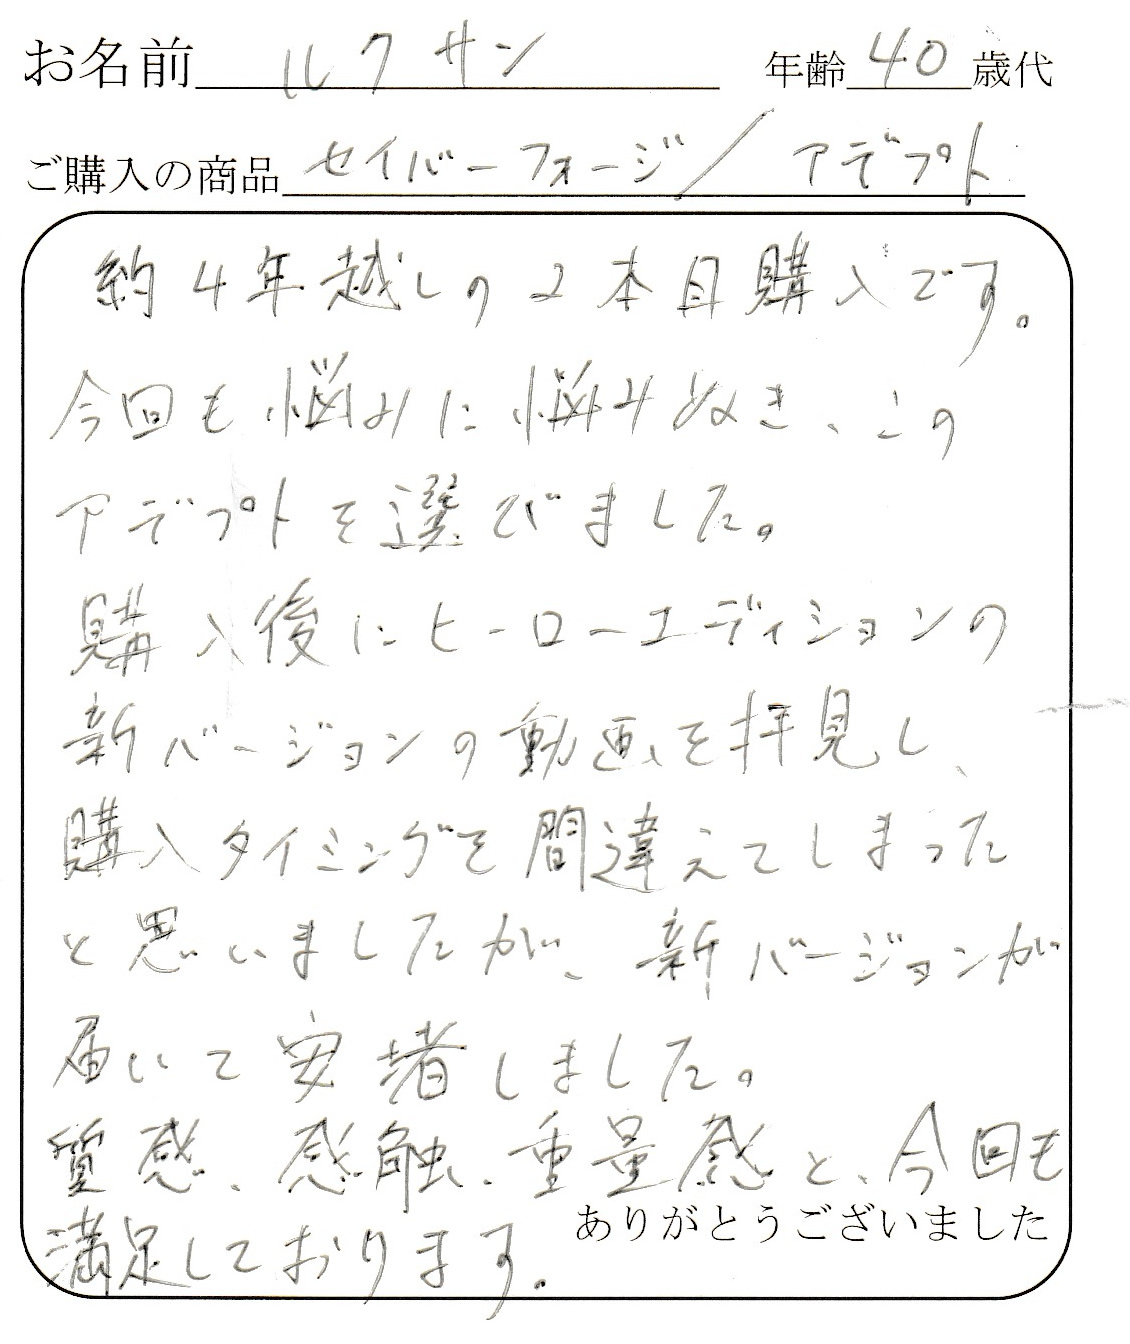 お名前 ルクサン 年齢 40 歳代
ご購入の商品 セイバーフォージ/アデプト
約4年越しの2本目購入です。
今回も悩みに悩みぬき、この
アデプトを選びました。
購入後にヒーローエディションの
新バージョンの動画を拝見し、
購入タイミングを間違えてしまった
と思いましたが、新バージョンが
届いて安堵しました。
質感、感触、重量感と、今回も
満足しております。
ありがとうございました